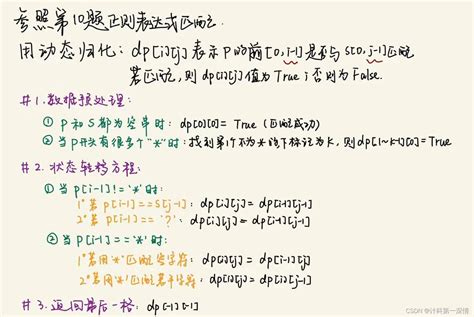 参照第10题正则表达式匹配
用动态规划: dp[i][j] 表示 P的前[0, i-1]是否与S[0, j-1]匹配
若匹配, 则 dp[i][j] 值为 True; 否则为 False.
# 1. 数据预处理:
① P和S都为空串时: dp[0][0] = True (匹配成功)
② 当P开头有很多个"*"时: 找到第1个不为*的下标记为K, 则dp[1~K-1][0]=True
# 2. 状态转移方程:
① 当 p[i-1] != '*' 时:
1° 若 p[i-1] == s[j-1]: dp[i][j] = dp[i-1][j-1]
2° 若 p[i-1] == '?': dp[i][j] = dp[i-1][j-1]
② 当 p[i-1] == '*' 时:
1° 若用'*'匹配空字符: dp[i][j] = dp[i-1][j]
2° 若用'*'匹配若干字符: dp[i][j] = dp[i][j-1]
# 3. 返回最后一格: dp[-1][-1]
CSDN @计科第一深情